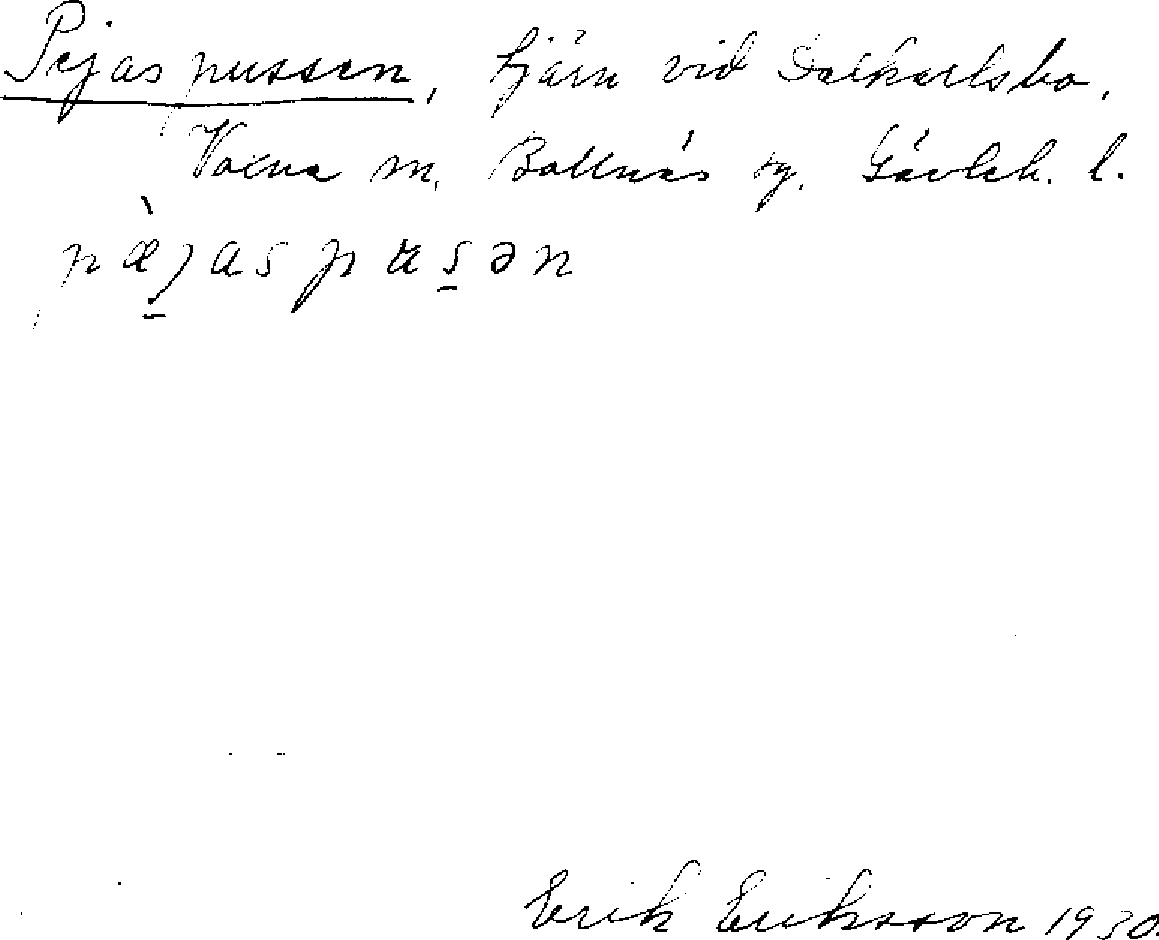 Pejaspussen, tjärn vid Dalkarlsbo,
Voxna m. Bollnäs sg. Gävleb. l.
pæ̀jaspʉsən
Erik Eriksson 1930.